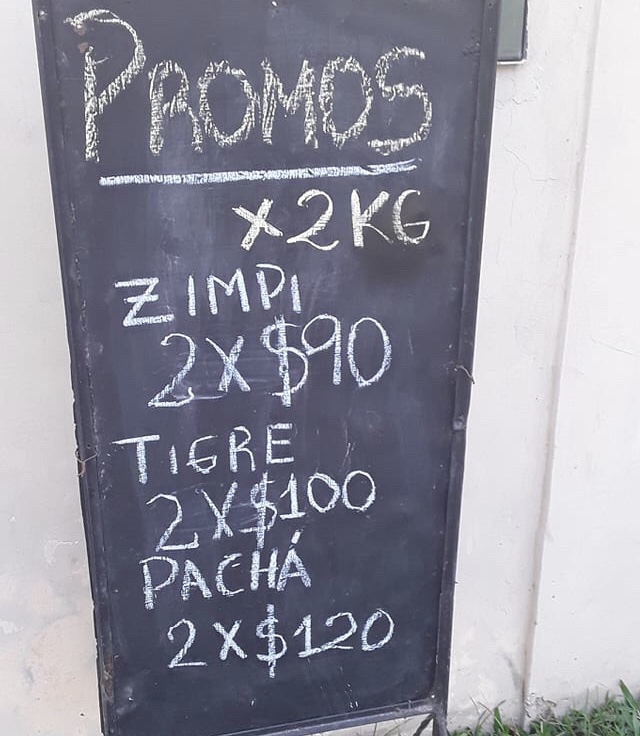 PROMOS
x2KG
ZIMPI
2X$90
TIGRE
2X$100
PACHÁ
2X$120